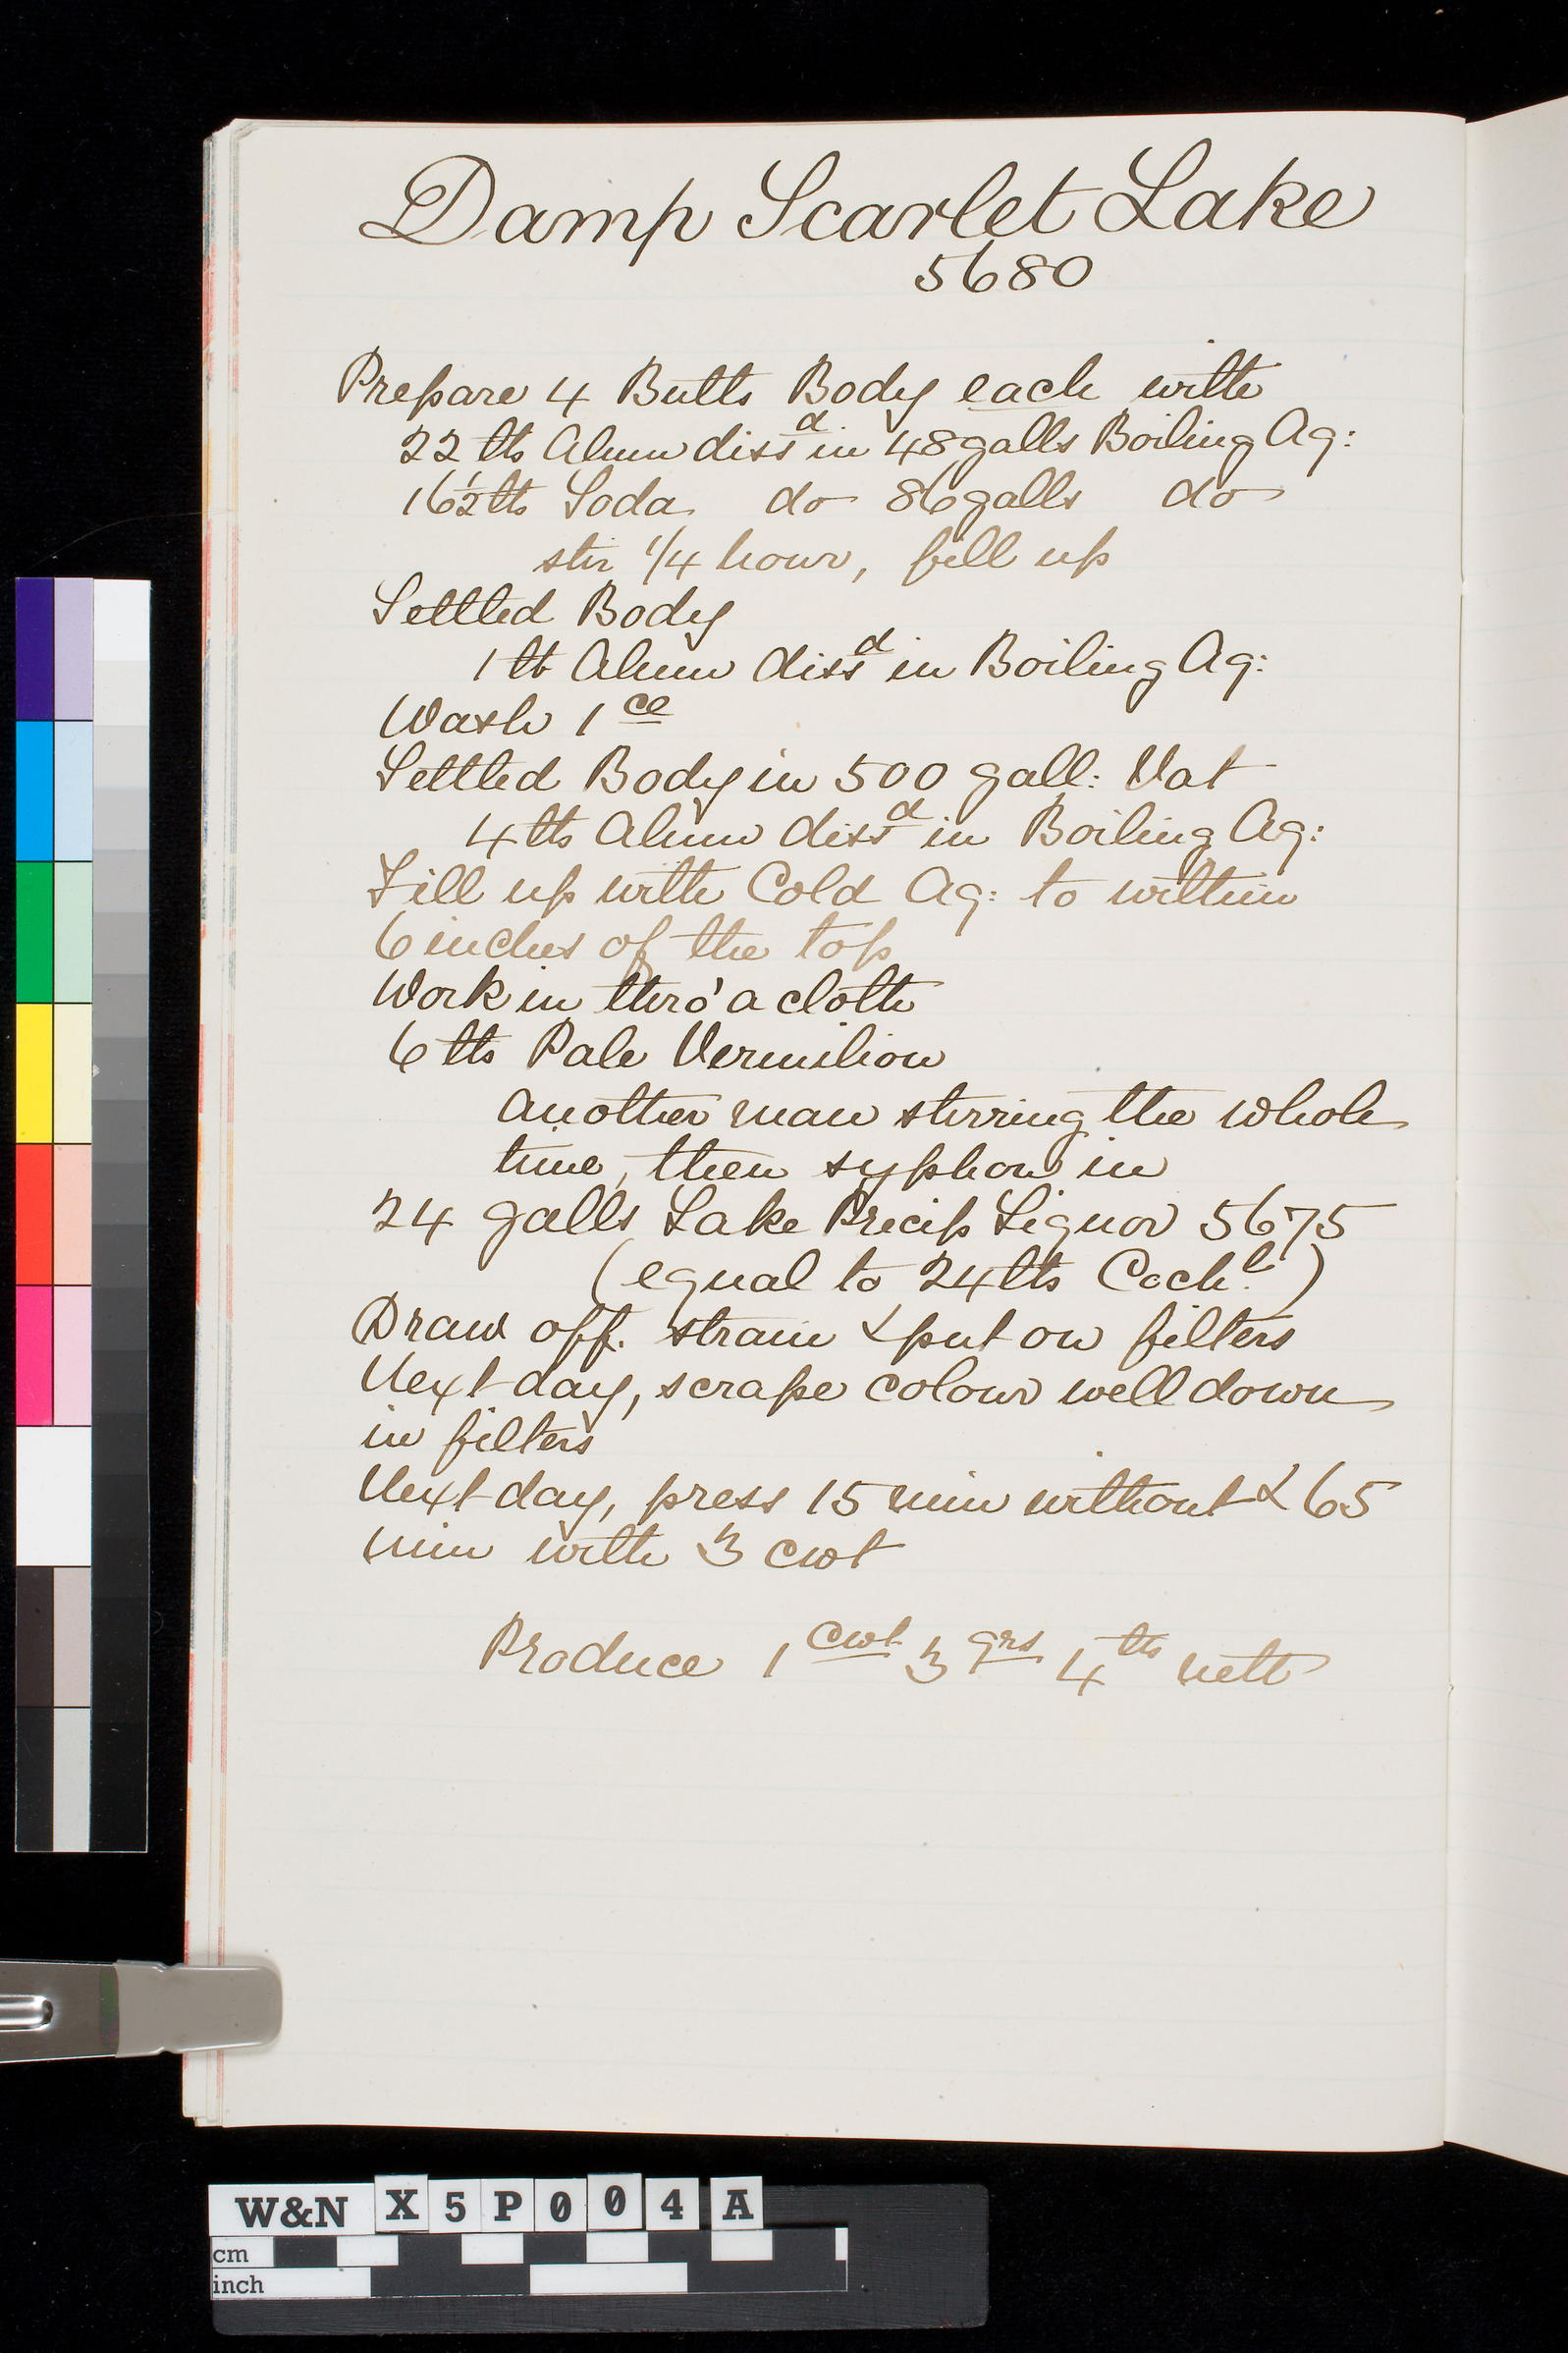 Damp Scarlet Lake
5680
Prepare 4 Butts Body each with
22 lbs Alum dissd in 48 galls Boiling Aq:
16½ lbs Soda do 86 galls do
stir 1/4 hour, fill up
Settled Body
1 lb Alum dissd in Boiling Aq:
Wash 1ce
Settled Body in 500 gall: Vat
4 lbs Alum dissd in Boiling Aq:
Fill up with Cold Aq: to within
6 inches of the top
Work in thro' a cloth
6 lbs Pale Vermilion
another man stirring the whole
time, then syphon in
24 galls Lake Precip Liquor 5675
(equal to 24 lbs Cochl.)
Draw off. strain & put on filters
Next day, scrape colour well down
in filters
Next day, press 15 min without & 65
min with 3 cwt
Produce 1 cwt 3 qrs 4 lbs nett
W&N X5P004A
cm
inch